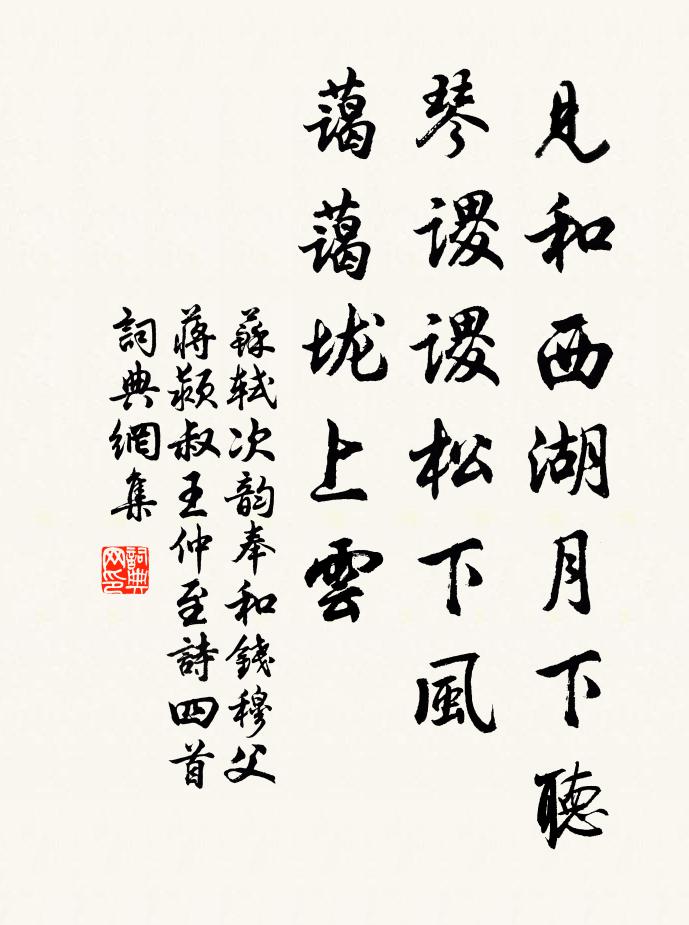 見和西湖月下聽
琴謖謖松下風
藹藹垅上雲
蘇軾次韵奉和錢穆父
蔣颖叔王仲至詩四首
詞典網集
詞典
网印